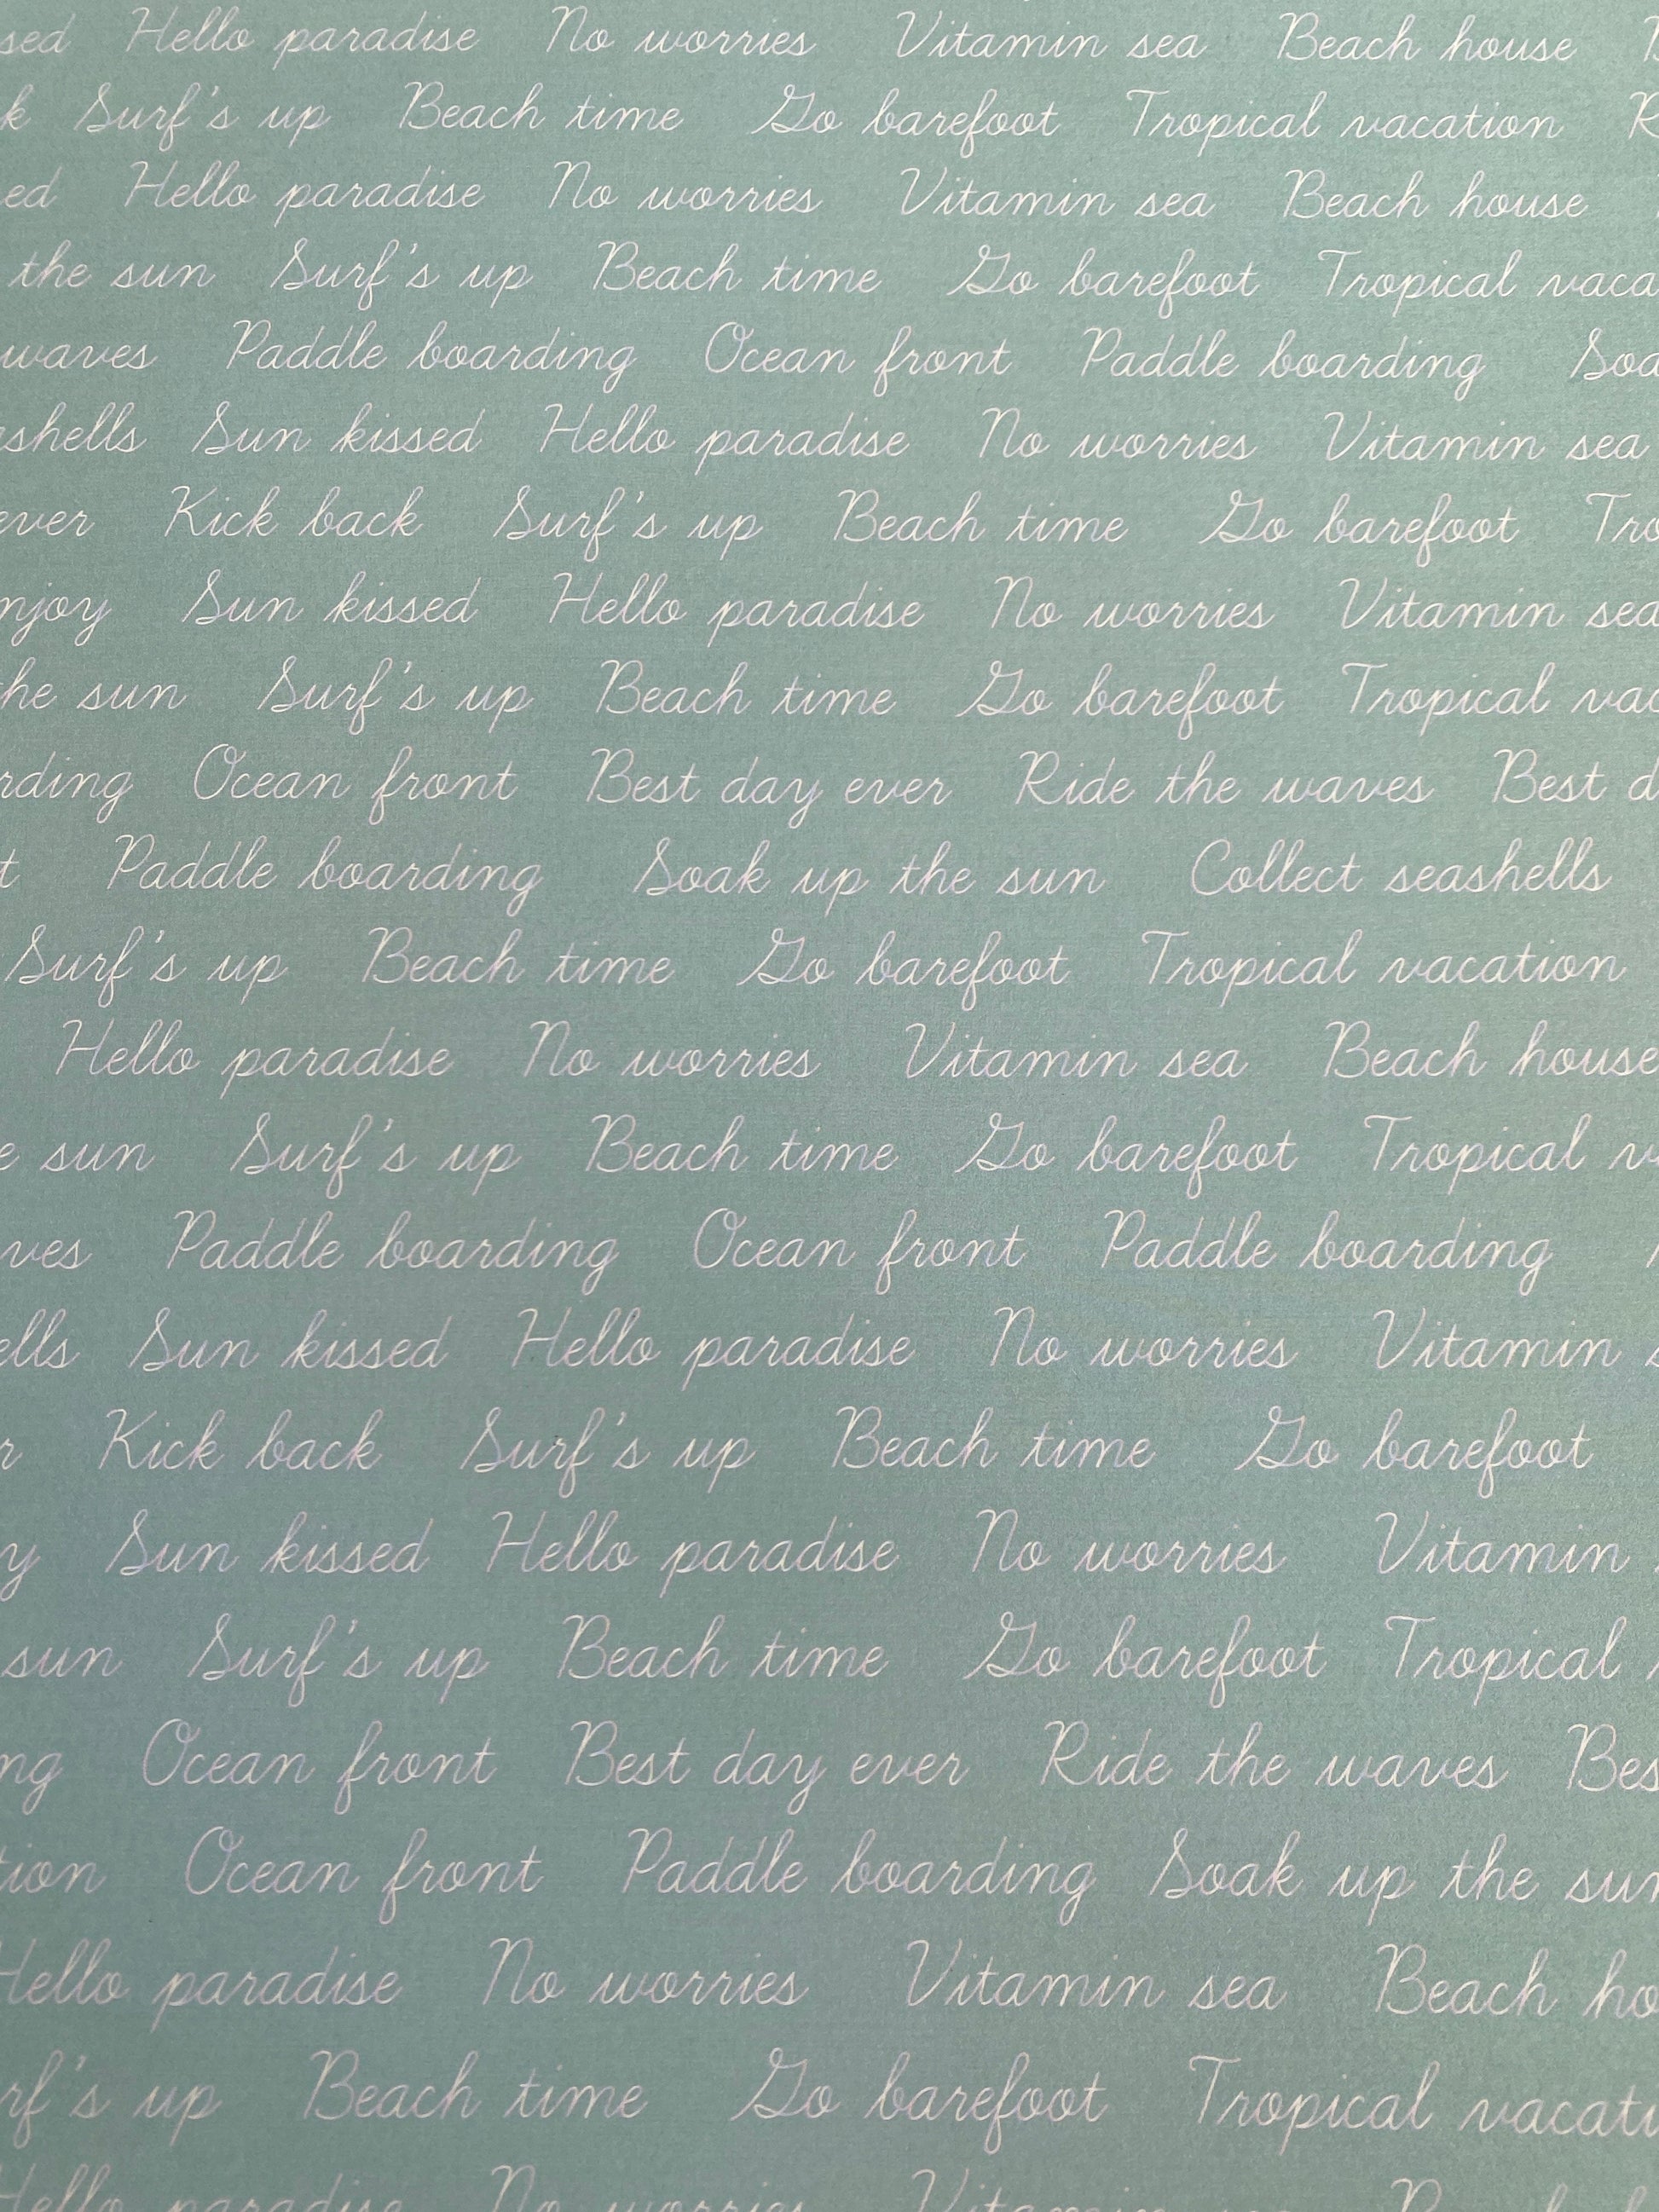 sed Hello paradise No worries Vitamin sea Beach house
k Surf's up Beach time Go barefoot Tropical vacation R
ed Hello paradise No worries Vitamin sea Beach house
the sun Surf's up Beach time Go barefoot Tropical vaca
waves Paddle boarding Ocean front Paddle boarding Soa
ashells Sun kissed Hello paradise No worries Vitamin sea
ever Kick back Surf's up Beach time Go barefoot Tro
njoy Sun kissed Hello paradise No worries Vitamin sea
he sun Surf's up Beach time Go barefoot Tropical vac
rding Ocean front Best day ever Ride the waves Best d
t Paddle boarding Soak up the sun Collect seashells
Surf's up Beach time Go barefoot Tropical vacation
Hello paradise No worries Vitamin sea Beach house
e sun Surf's up Beach time Go barefoot Tropical v
ves Paddle boarding Ocean front Paddle boarding
ells Sun kissed Hello paradise No worries Vitamin s
r Kick back Surf's up Beach time Go barefoot
y Sun kissed Hello paradise No worries Vitamin
sun Surf's up Beach time Go barefoot Tropical
ng Ocean front Best day ever Ride the waves Bes
tion Ocean front Paddle boarding Soak up the sun
Hello paradise No worries Vitamin sea Beach ho
rf's up Beach time Go barefoot Tropical vacati
Hello paradise No worries Vitamin sea